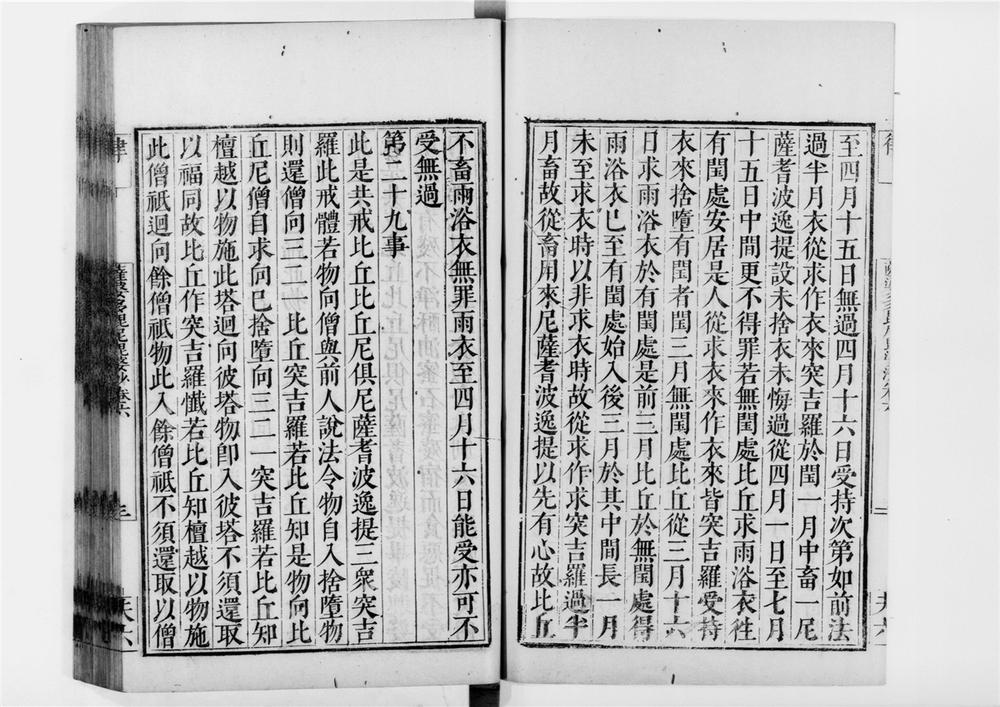 至四月十五日無過四月十六日受持次第如前法
過半月衣從求作衣來突吉羅於閏一月中畜一尼
薩耆波逸提設未捨衣未悔過從四月一日至七月
十五日中間更不得罪若無閏處比丘求雨浴衣往
有閏處安居是人從求衣來作衣來皆突吉羅受持
衣來捨墮有閏者閏三月無閏處比丘從三月十六
日求雨浴衣於有閏處是前三月比丘於無閏處得
雨浴衣已至有閏處始入後三月於其中間長一月
未至求衣時以非求衣時故從求作求突吉羅過半
月畜故從畜用來尼薩耆波逸提以先有心故比丘
不畜雨浴衣無罪雨衣至四月十六日能受亦可不
受無過
第二十九事
此是共戒比丘比丘尼俱尼薩耆波逸提三衆突吉
羅此戒體若物向僧與前人說法令物自入捨墮物
則還僧向三二一比丘突吉羅若比丘知是物向比
丘尼僧自求向已捨墮向三二一突吉羅若比丘知
檀越以物施此塔迴向彼塔物卽入彼塔不須還取
以福同故比丘作突吉羅懺若比丘知檀越以物施
此僧祇迴向餘僧祇物此入餘僧祇不須還取以僧
律
三
夫六